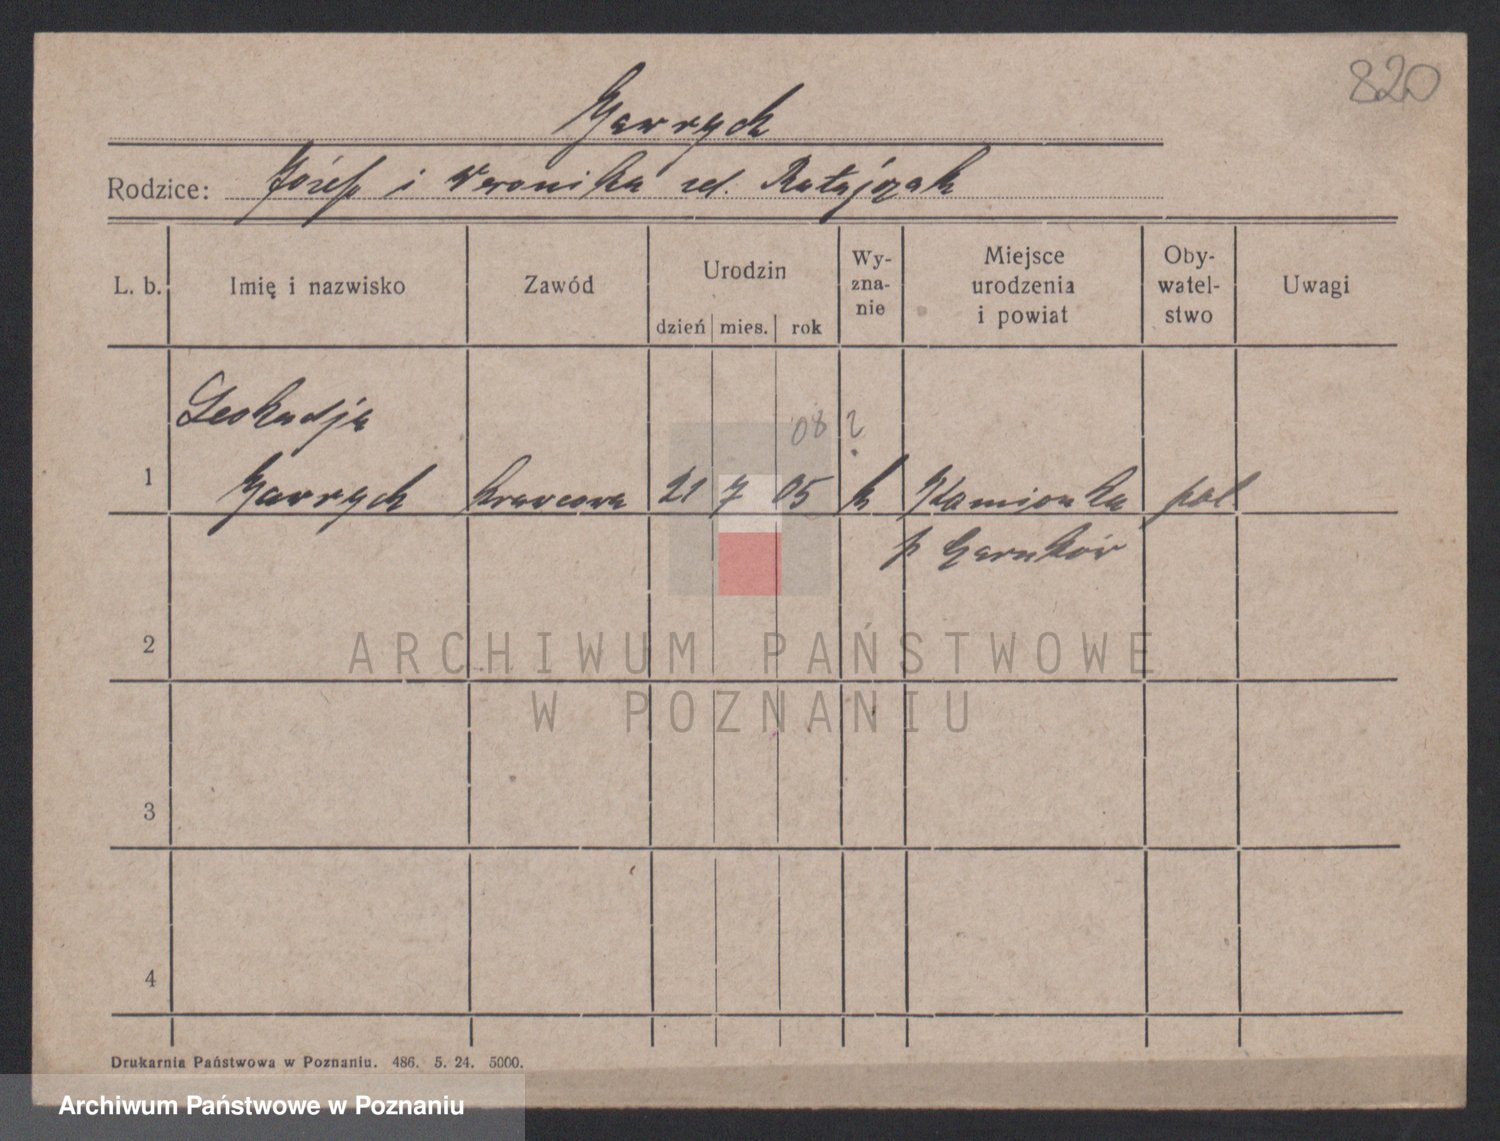 820
Gawrych
Rodzice: Józef i Weronika zd. Ratajczak
L. b. Imię i nazwisko Zawód Urodzin dzień mies. rok Wy-zna-nie Miejsce urodzenia i powiat Oby-watel-stwo Uwagi
Leokadja
08 ?
1 Gawrych krawcowa 21 7 05 k Kamionka pol
p Czarnków
2
3
4
Drukarnia Państwowa w Poznaniu. 486. 5. 24. 5000.
ARCHIWUM PAŃSTWOWE
W POZNANIU
Archiwum Państwowe w Poznaniu